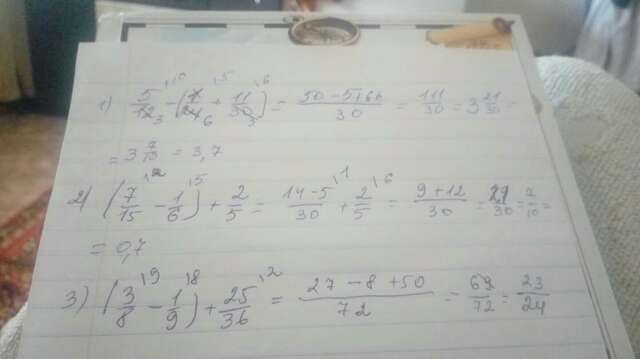 1) 5/12 - (1/24 + 11/30) = (50 - 5 + 66)/30 = 111/30 = 3 21/30 =
= 3 7/10 = 3,7
2) (7/15 - 1/6) + 2/5 = (14 - 5)/30 + 2/5 = (9 + 12)/30 = 21/30 = 7/10 =
= 0,7
3) (3/8 - 1/9) + 25/36 = (27 - 8 + 50)/72 = 69/72 = 23/24